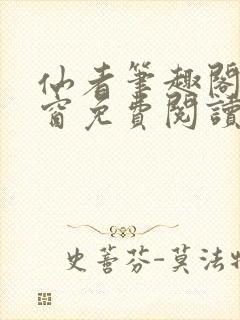 仙者筆趣閣
窗免費閱讀
史蒼芬-莫法特